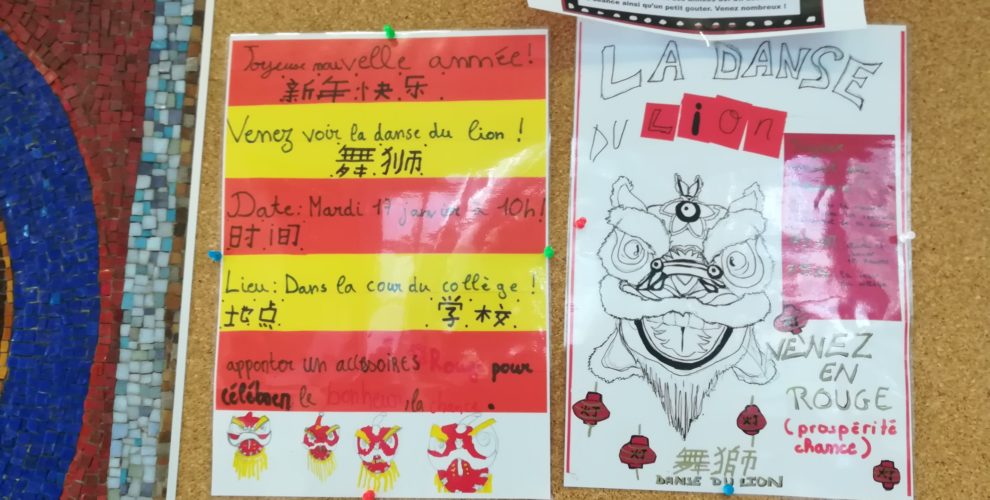 séance ainsi qu'un petit gouter. Venez nombreux !
Joyeuse nouvelle année!
新年快乐
Venez voir la danse du lion !
舞狮
Date: Mardi 17 janvier à 10h!
时间
Lieu: Dans la cour du collège !
地点 学校
apporter un accéssoires Rouge pour
célébrer le bonheur, la chance.
LA DANSE
DU LiOn
VENEZ
EN
ROUGE
(prospérité
chance)
舞獅
DANSE DU LION